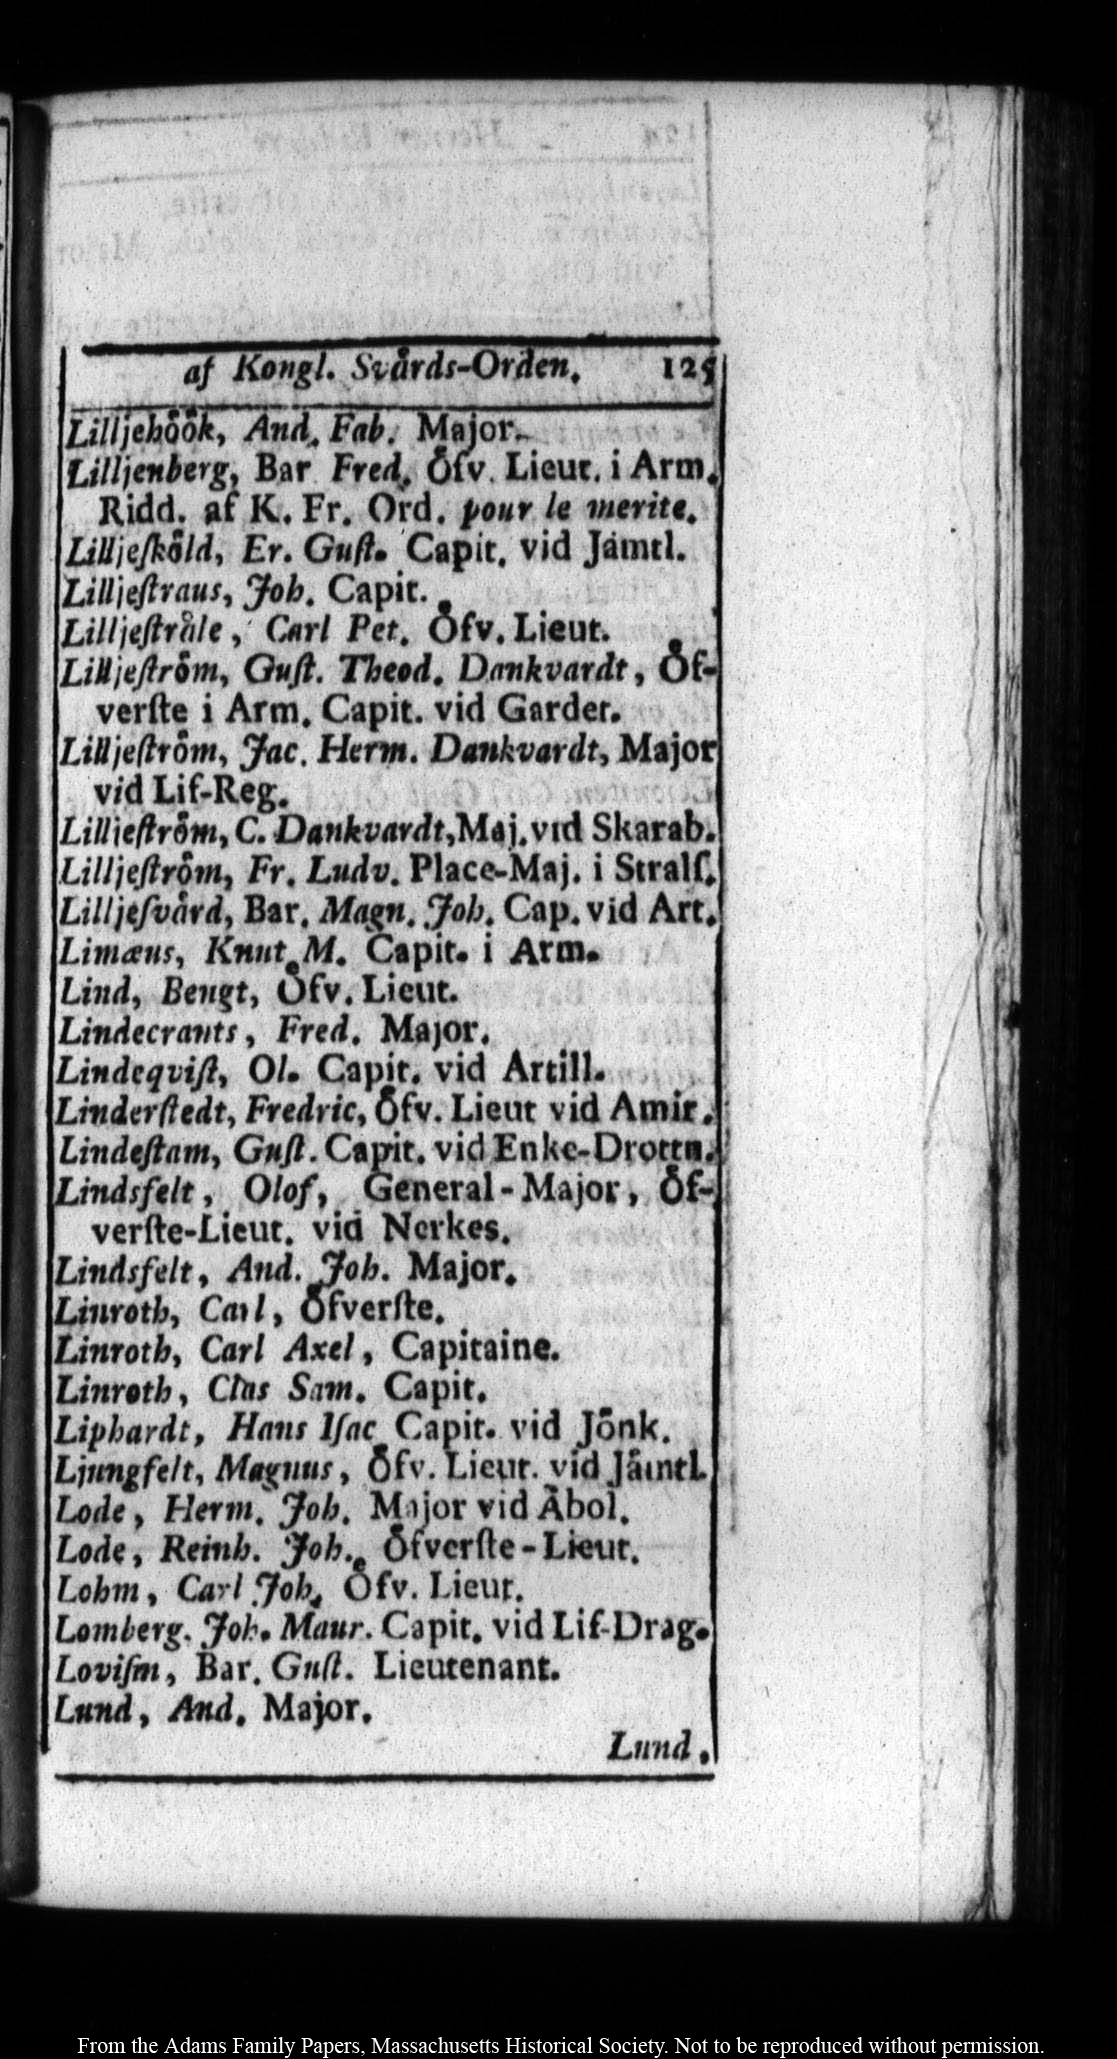 af Kongl. Svärds-Orden. 125
Lilljehöök, And. Fab. Major.
Lilljenberg, Bar Fred. Öfv. Lieut. i Arm.
Ridd. af K. Fr. Ord. pour le merite.
Lilljeſköld, Er. Guſt. Capit. vid Jämtl.
Lilljeſtraus, Joh. Capit.
Lilljeſtråle, Carl Pet. Öfv. Lieut.
Lilljeſtröm, Guſt. Theod. Dankvardt, Öf-
verſte i Arm. Capit. vid Garder.
Lilljeſtröm, Jac. Herm. Dankvardt, Major
vid Lif-Reg.
Lilljeſtröm, C. Dankvardt, Maj. vid Skarab.
Lilljeſtröm, Fr. Ludv. Place-Maj. i Stralſ.
Lilljeſvärd, Bar. Magn. Joh. Cap. vid Art.
Limæus, Knut M. Capit. i Arm.
Lind, Bengt, Öfv. Lieut.
Lindecrants, Fred. Major.
Lindeqviſt, Ol. Capit. vid Artill.
Linderſtedt, Fredric, Öfv. Lieut vid Amir.
Lindeſtam, Guſt. Capit. vid Enke-Drottn.
Lindsfelt, Olof, General-Major, Öf-
verſte-Lieut. vid Nerkes.
Lindsfelt, And. Joh. Major.
Linroth, Carl, Öfverſte.
Linroth, Carl Axel, Capitaine.
Linroth, Clas Sam. Capit.
Liphardt, Hans Iſac Capit. vid Jönk.
Ljungfelt, Magnus, Öfv. Lieut. vid Jämtl.
Lode, Herm. Joh. Major vid Åbol.
Lode, Reinh. Joh. Öfverſte-Lieut.
Lohm, Carl Joh. Öfv. Lieut.
Lomberg. Joh. Maur. Capit. vid Lif-Drag.
Loviſin, Bar. Guſt. Lieutenant.
Lund, And. Major.
Lund.
From the Adams Family Papers, Massachusetts Historical Society. Not to be reproduced without permission.